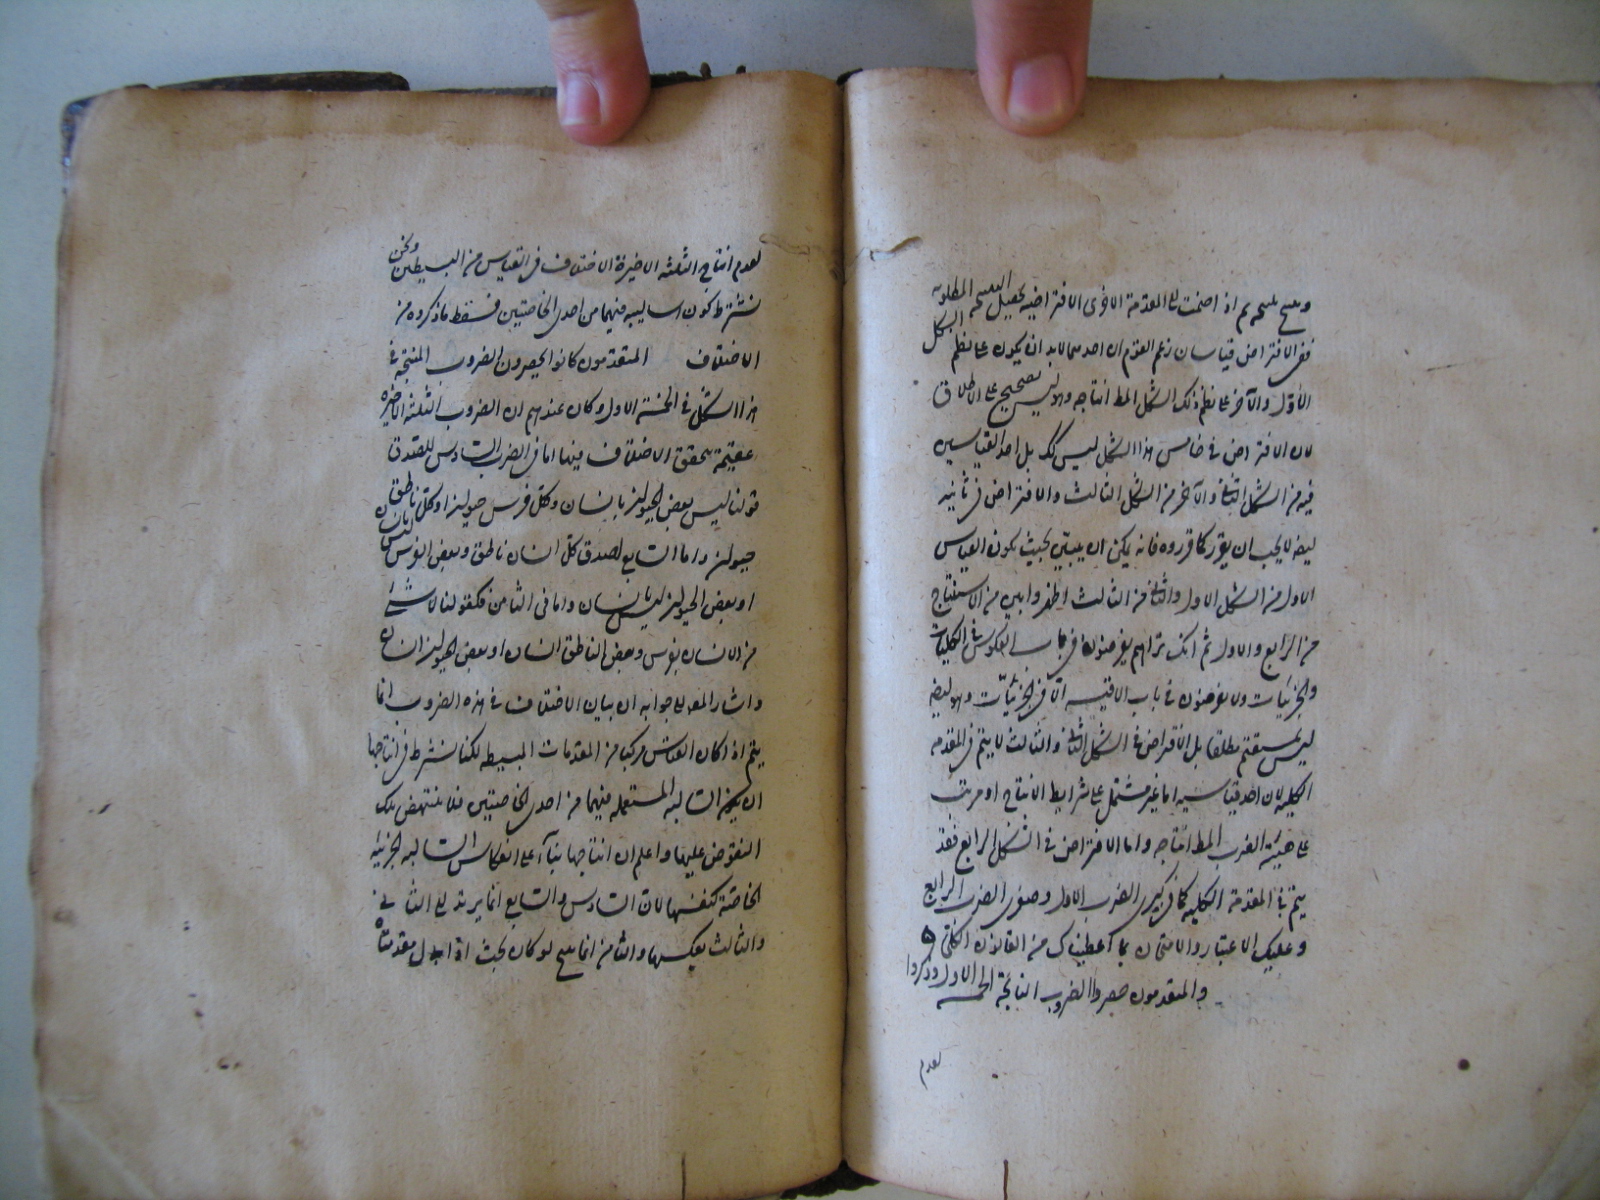 وينتج نتيجة اذا ضمت الى المقدمة الاخرى الافتراضية يحصل النتيجة المطلوبة
ففى الافتراض قياسان زعم القوم ان احدهما لابد ان يكون على نظم الشكل
الاول والآخر على نظم ذلك الشكل المط انتاجه وهو ليس بصحيح على الاطلاق
لان الافتراض فى خامس هذا الشكل ليس كك بل احد القياسين
فيه من الشكل الثانى والآخر من الشكل الثالث والافتراض فى ثانيه
ايضا لا يجب ان يقرر كما قرروه فانه يمكن ان يبين بحيث يكون القياس
الاول من الشكل الاول والثانى من الثالث اظهر وابين من الاستنتاج
من الرابع والاول ثم انك تراهم يفرضون فى باب العكوس فى الكليات
والجزئيات ولا يفرضون فى باب الاقيسة الا فى الجزئيات وهو ايضا
ليس بمستقيم مطلقا بل الافتراض فى الشكل الثانى والثالث لا يتم فى المقدمة
الكلية لان احد قياسيه اما غير مشتمل على شرايط الانتاج او مرتب
على هيئة الضرب المط انتاجه واما الافتراض فى الشكل الرابع فقد
يتم فى المقدمة الكلية كما فى كبرى الضرب الاول وصغرى الضرب الرابع
وعليك الاعتبار والامتحان بما اعطيناك من القانون الكلى
والمتقدمون حصروا الضروب الناتجة الخمسة الاول وذكروا
لعدم
لعدم انتاج الثلثة الاخيرة الاختلاف فى القياس من البسيطين ونحن
نشترط كون السالبة فيهما من احدى الخاصتين فسقط ما ذكروه من
الاختلاف المتقدمون كانوا يحصرون الضروب المنتجة فى
هذا الشكل فى الخمسة الاول وكان عندهم ان الضروب الثلثة الاخيرة
عقيمة لتحقق الاختلاف فيها اما فى الضرب السادس فلصدق
قولنا ليس بعض الحيوان بانسان وكل فرس حيوان او كل ناطق
حيوان واما السابع لصدق كل انسان ناطق وبعض الفرس ليس بانسان
او بعض الحيوان ليس بانسان واما فى الثامن فكقولنا لا شىء
من الانسان بفرس وبعض الناطق انسان او بعض الحيوان انسان
واشار المصـ الى جوابه ان بيان الاختلاف فى هذه الضروب انما
يتم اذا كان القياس مركبا من المقدمات البسيطة لكنا نشترط فى انتاجها
ان يكون السالبة المستعملة فيهما من احدى الخاصتين فلا ينتهض تلك
النقوض عليها واعلم ان انتاجها بناء على انعكاس السالبة الجزئية
الخاصة كنفسها لان السادس والسابع انما يرتد الى الثانى
والثالث بعكسها والثامن انما ينتج لو كان بحيث اذا بدل مقدمتاه